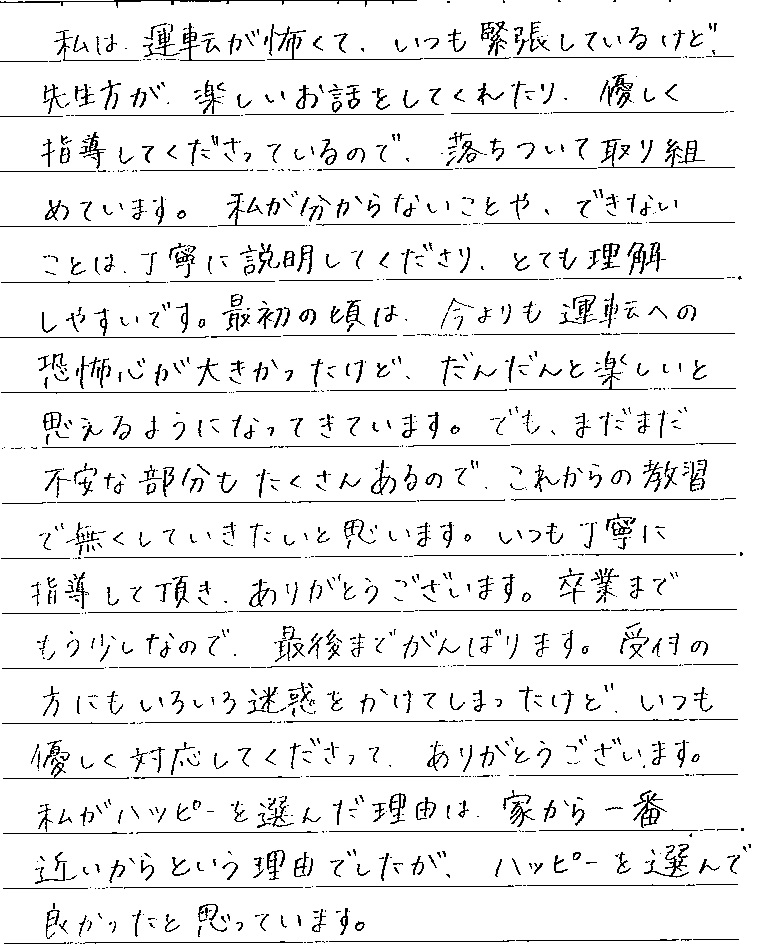 私は、運転が怖くて、いつも緊張しているけど、
先生方が、楽しいお話をしてくれたり、優しく
指導してくださっているので、落ちついて取り組
めています。私が分からないことや、できない
ことは、丁寧に説明してくださり、とても理解
しやすいです。最初の頃は、今よりも運転への
恐怖心が大きかったけど、だんだんと楽しいと
思えるようになってきています。でも、まだまだ
不安な部分もたくさんあるので、これからの教習
で無くしていきたいと思います。いつも丁寧に
指導して頂き、ありがとうございます。卒業まで
もう少しなので、最後までがんばります。受付の
方にもいろいろ迷惑をかけてしまったけど、いつも
優しく対応してくださって、ありがとうございます。
私がハッピーを選んだ理由は、家から一番
近いからという理由でしたが、ハッピーを選んで
良かったと思っています。